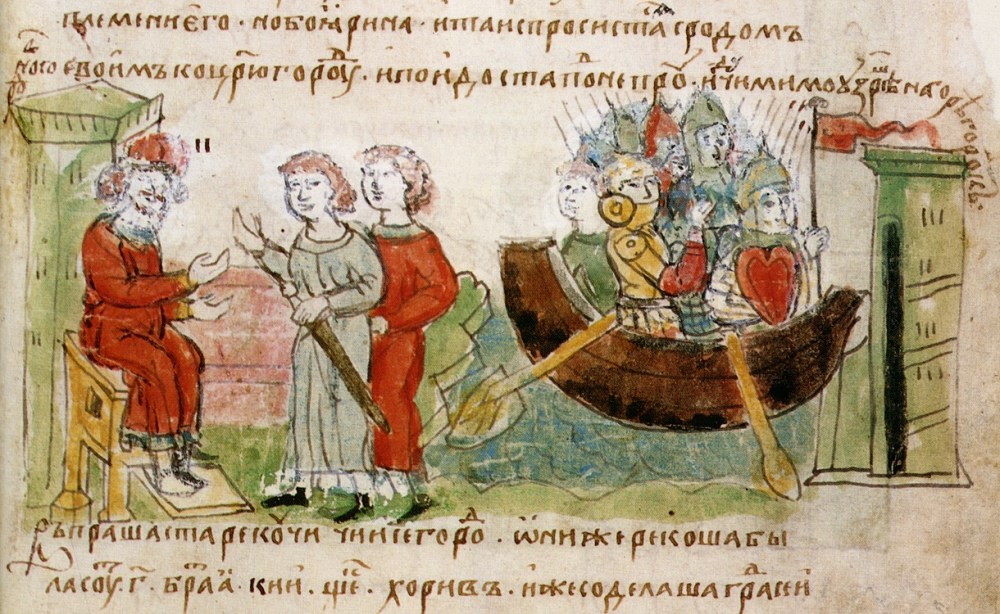 племени его · но боѧрина · и та испросистаⷭ с родомъ
своимъ ко црюгороⷣу · и поидоста по непроⷹ · идꙋчи мимо узрѣⷭ на горѣ городокъ ·
въпрашаста рекочи чии се гороⷣ · ѡни же рекоша бы
ла соуⷮ · г҃ · браⷮа · кии · щеⷦ · хоривъ · иже соделаша граⷣ сеи